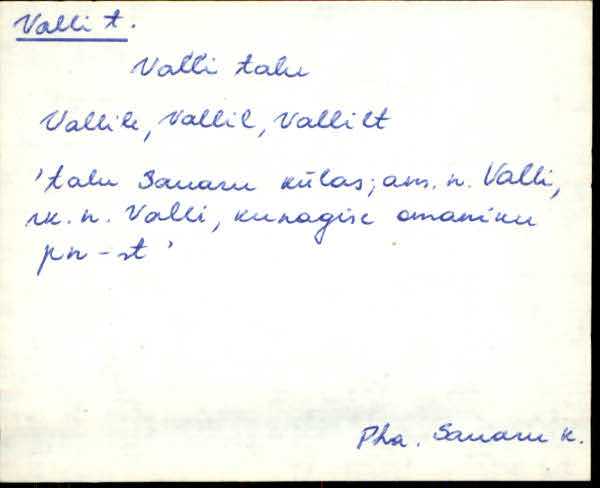 Valli t.
Valli talu
Vallile, Vallil, Vallilt
'talu Sauaru külas; am. n. Valli,
rk. n. Valli, kunagise omaniku
pn-st'
Pha. Sauaru k.